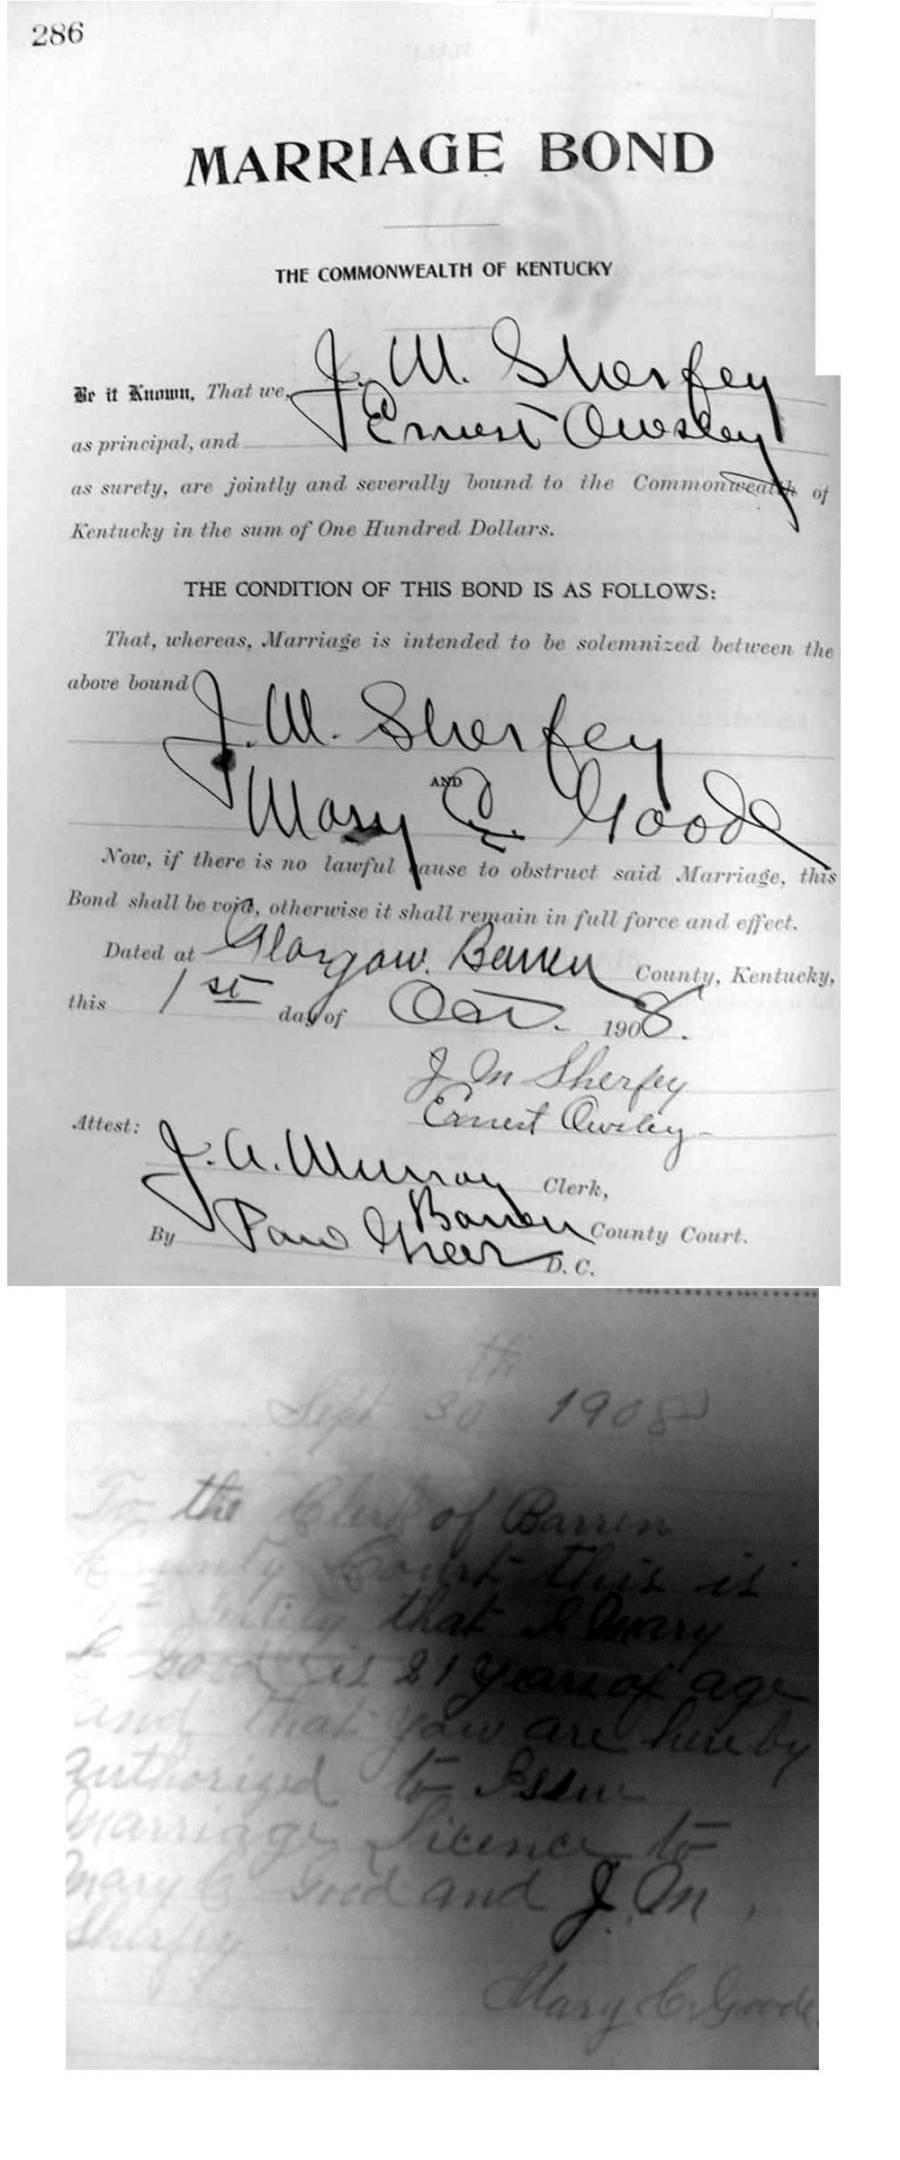 286
MARRIAGE BOND
THE COMMONWEALTH OF KENTUCKY
Be it Known, That we, J. M. Sherfey
as principal, and Ernest Owsley
as surety, are jointly and severally bound to the Commonwealth of
Kentucky in the sum of One Hundred Dollars.
THE CONDITION OF THIS BOND IS AS FOLLOWS:
That, whereas, Marriage is intended to be solemnized between the
above bound
J. M. Sherfey
AND
Mary C. Goode
Now, if there is no lawful cause to obstruct said Marriage, this
Bond shall be void, otherwise it shall remain in full force and effect.
Dated at Glasgow. Barren County, Kentucky,
this 1st day of Oct. 1908.
J M Sherfey
Ernest Owsley
Attest:
J. A. Murray Clerk,
Barren County Court.
By Paul Greer D. C.
Sept 30th 1908
To the Clerk of Barren
County Court this is
to Certify that I Mary
C Good is 21 years of age
and that you are hereby
authorized to Issue
Marriage Licence to
Mary C Good and J. M.
Sherfey
Mary C. Goode